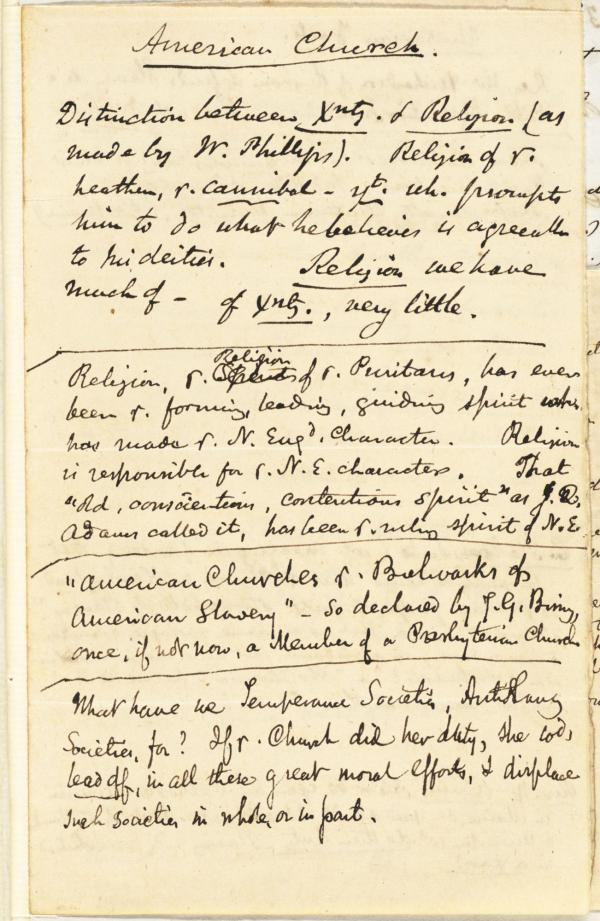 American Church.
Distinction between Xnty. & Religion (as
made by W. Phillips). Religion of r.
heathen, r. cannibal - yt. wh. prompts
him to do what he believes is agreeable
to his deities. Religion we have
much of - of Xnty., very little.
Religion
Religion, r. of r. Puritans, has ever
been r. forming, leading, guiding spirit
has made r. N. Engd. character. Religion
is responsible for r. N. E. character. That
"old, conscientious, contentious spirit" as J. Q.
Adams called it, has been r. ruling spirit of N. E.
"American Churches r. Bulwarks of
American Slavery" - so declared by J. G. Birney,
once, if not now, a Member of a Presbyterian Church
What have we Temperance Societies, AntiSlavy
Societies, for? If r. Church did her duty, she wd.
lead off, in all these great moral efforts, & displace
such societies in whole, or in part.